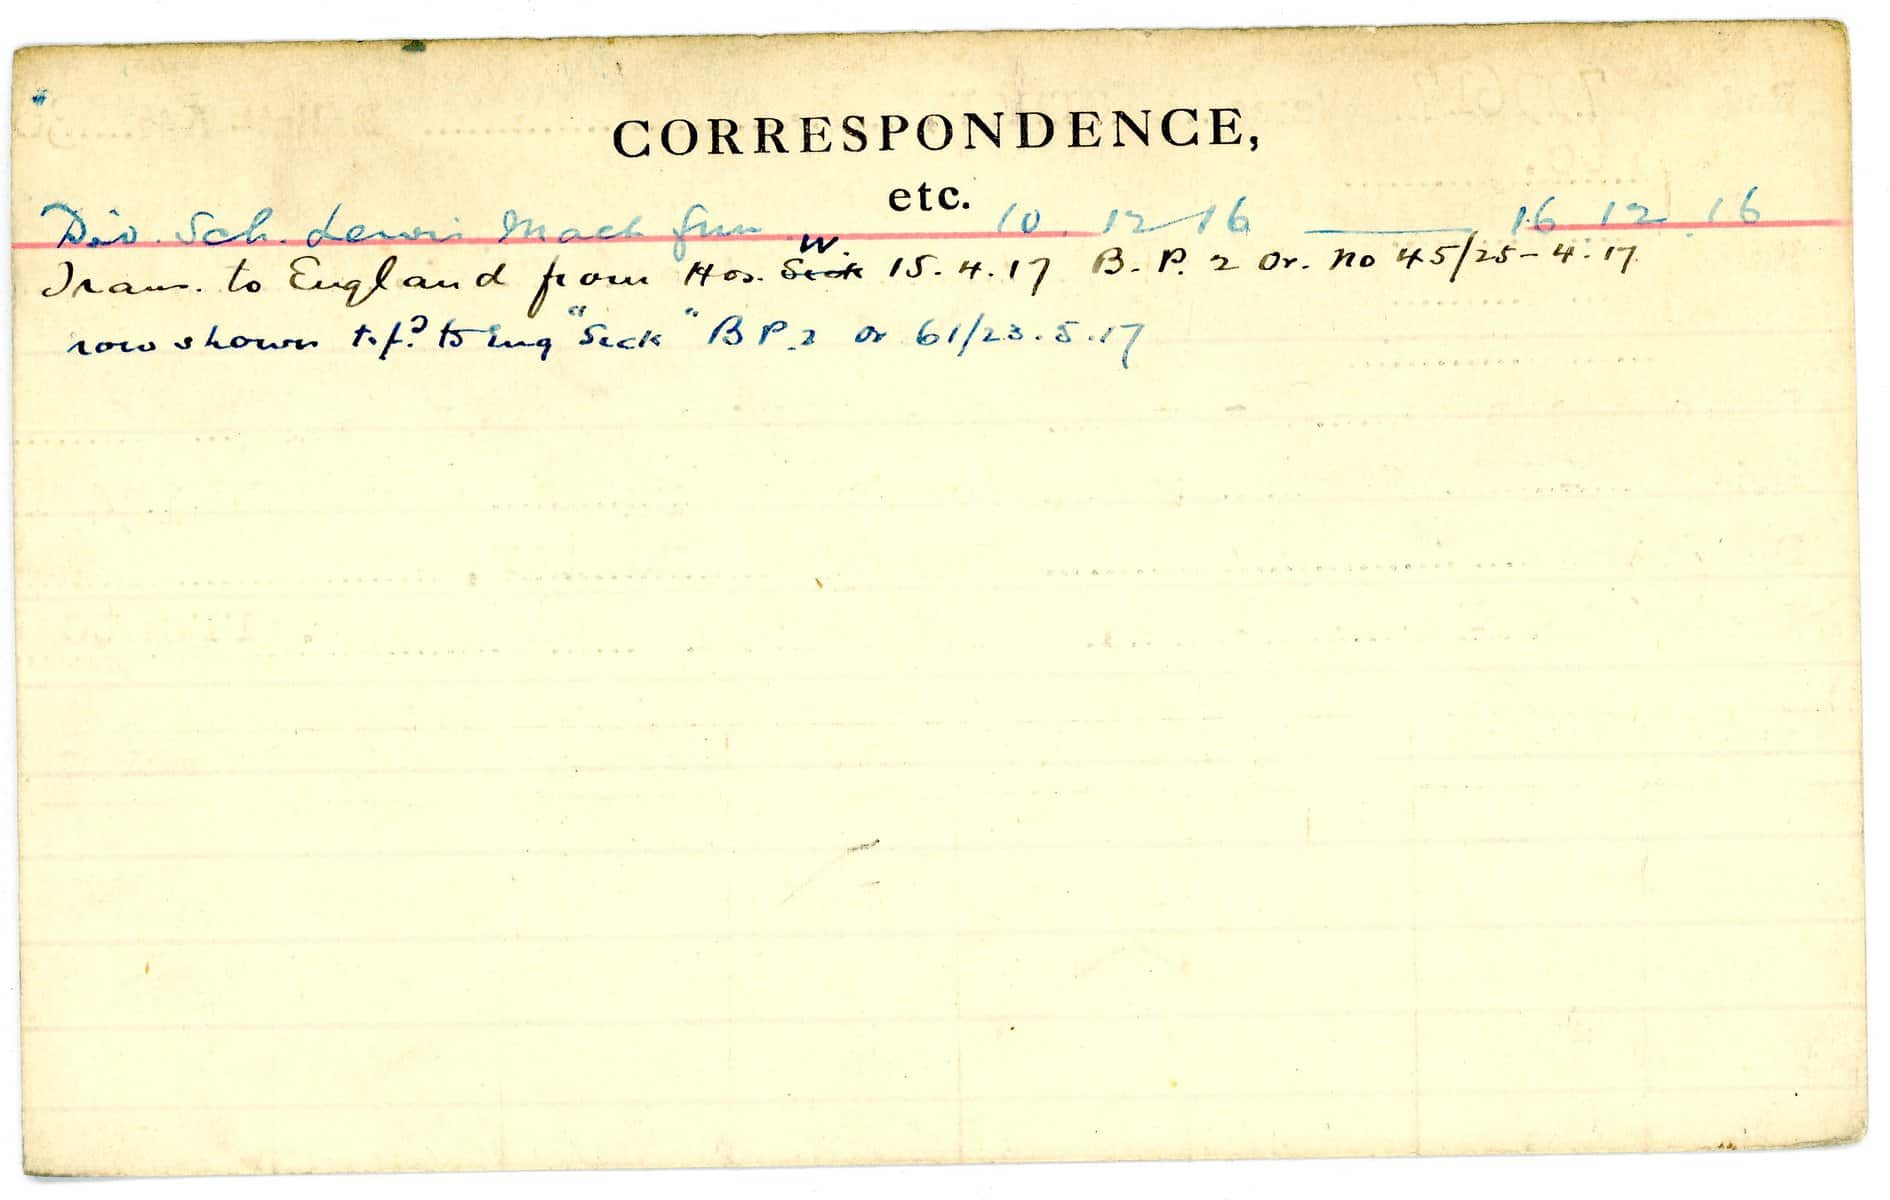 CORRESPONDENCE,
etc.
Div. Sch. Lewis Mach Gun 10.12.16 — 16.12.16
Trans. to England from Hos. Sick W. 15.4.17 B.P. 2 Or. No 45/25-4.17
now shown t.f.? to Eng "Sick" B P.2 Or 61/23.5.17